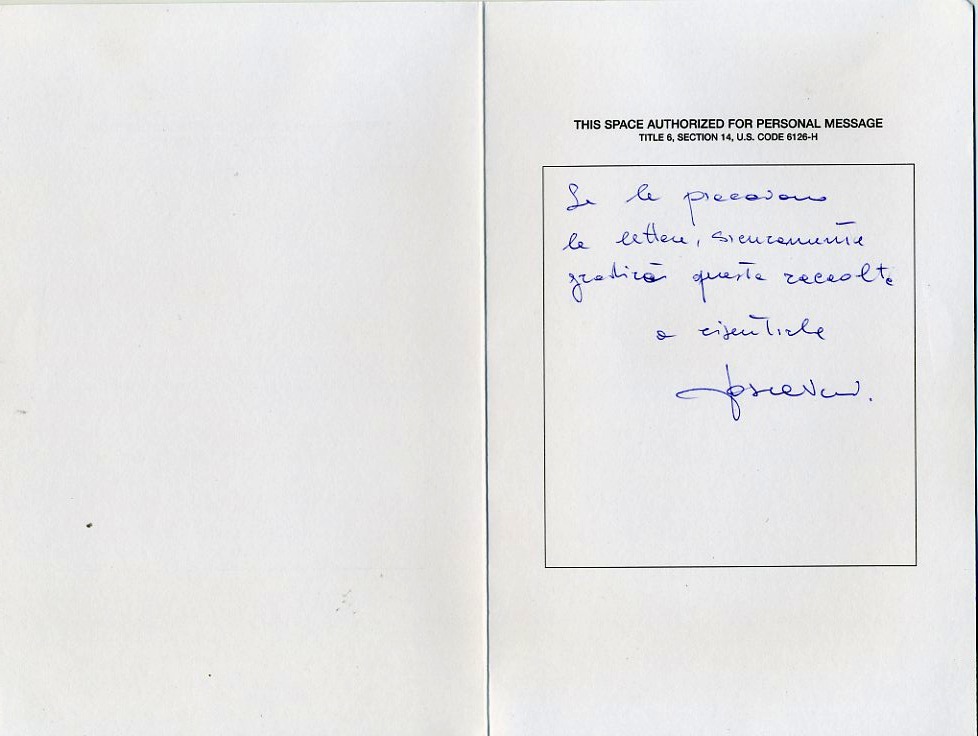 THIS SPACE AUTHORIZED FOR PERSONAL MESSAGE
TITLE 6, SECTION 14, U.S. CODE 6126-H
Se le piacciono
le lettere, sicuramente
gradirà questa raccolta
a risentirla